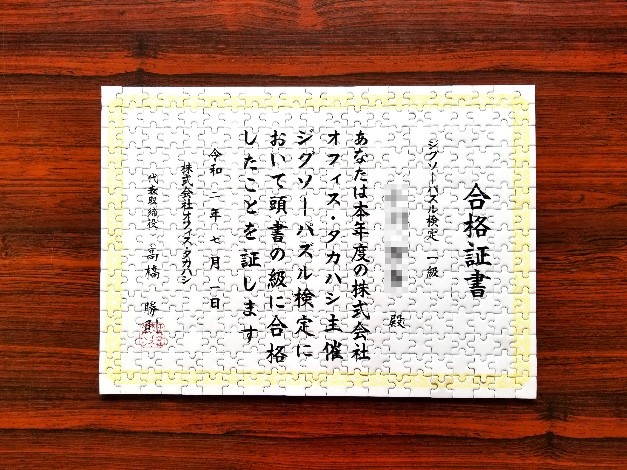 合格証書
ジグソーパズル検定 一級
殿
あなたは本年度の株式会社
オフィス・タカハシ主催
ジグソーパズル検定に
おいて頭書の級に合格
したことを証します
令和二年七月一日
株式会社オフィス・タカハシ
代表取締役 高橋 勝